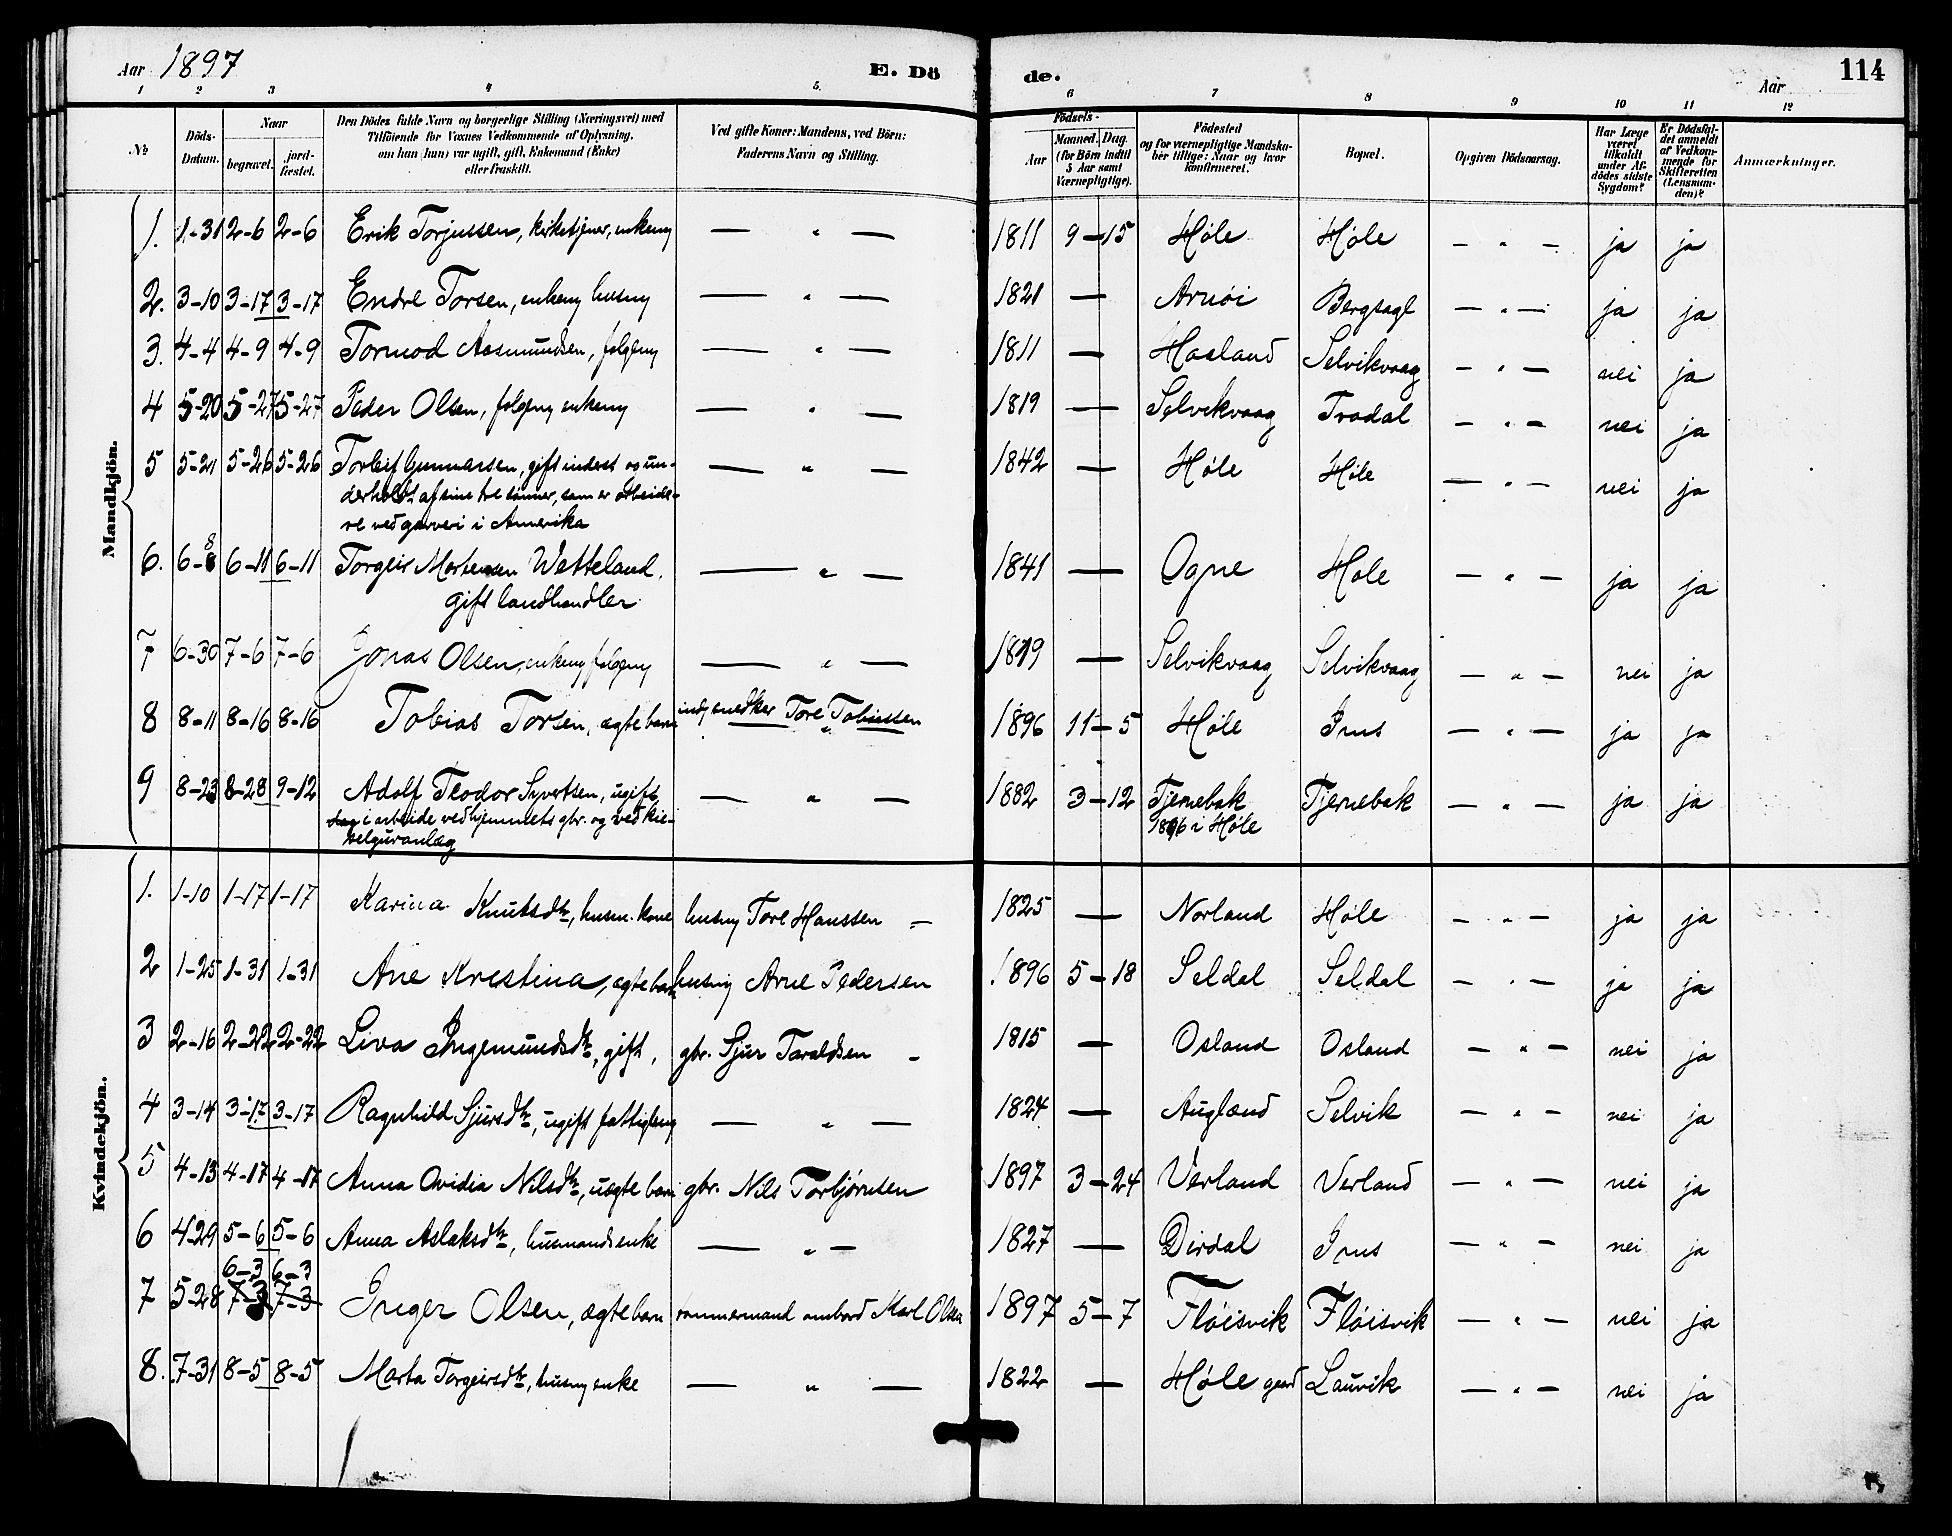 Aar 1897 E. Dö de. Aar 114
1 2 3 4 5. 6 7 8 9 10 11 12
No Döds-Datum. Naar begravet. jord-fæstet. Den Dödes fulde Navn og borgerlige Stilling (Næringsvei) med Tilföiende for Voxnes Vedkommende af Oplysning, om han (hun) var ugift, gift, Enkemand (Enke) eller fraskilt. Ved gifte Koner: Mandens, ved Börn: Faderens Navn og Stilling. Födsels- Aar Maaned. Dag. (for Börn indtil 5 Aar samt Værnepligtige). Födested og for værnepligtige Mandskaber tillige: Naar og hvor konfirmeret. Bopæl. Opgiven Dödsaarsag. Har Læge været tilkaldt under Afdödes sidste Sygdom? Er Dödsfaldet anmeldt af Vedkommende for Skifteretten (Lensmanden)? Anmærkninger.
Mandkjön.
1. 1-31 2-6 2-6 Erik Torjussen, kirketjener, enkem — " — 1811 9-15 Høle Høle — " — ja ja
2. 3-10 3-17 3-17 Endre Torsen, enkem husm — " — 1821 — Arnøi Bergsagl — " — ja ja
3. 4-4 4-9 4-9 Tormod Aasmundsen, folgem — " — 1811 — Haaland Selvikvaag — " — nei ja
4 5-20 5-27 5-27 Peder Olsen, folgem enkem — " — 1819 — Selvikvaag Tradal — " — nei ja
5 5-21 5-26 5-26 Torleif Gunnarsen, gift inderst og un- — " — 1842 — Høle Høle — " — nei ja
derholdt af sine tre sønner, som er arbeide-
re ved garveri i Amerika
6. 6-8 6-11 6-11 Torgeir Mortensen Wetteland, — " — 1841 — Ogne Høle — " — ja ja
gift landhandler
7 6-30 7-6 7-6 Jonas Olsen, enkem folgem — " — 1819 — Selvikvaag Selvikvaag — " — nei ja
8 8-11 8-16 8-16 Tobias Torsen, ægte barn ind, snedker Tore Tobiassen 1896 11-5 Høle Ims — " — ja ja
9 8-23 8-28 9-12 Adolf Teodor Syvertsen, ugift — " — 1882 3-12 Tjernebak Tjernebak — " — ja ja
i arbeide ved hjemmets gbr. og ved kie- 1896 i Høle
selguranlæg
Kvindekjön.
1. 1-10 1-17 1-17 Karina Knutsdtr, husm. kone husm Tore Hanssen — 1825 — Norland Høle — " — ja ja
2 1-25 1-31 1-31 Ane Kristina, ægte barn husm Arne Pedersen 1896 5-18 Seldal Seldal — " — ja ja
3 2-16 2-22 2-22 Liva Ingemundsdtr, gift, gbr. Sjur Taraldsen — 1815 — Osland Osland — " — nei ja
4 3-14 3-17 3-17 Ragnhild Sjursdtr, ugift fattiglem — " — 1824 — Augland Selvik — " — nei ja
5 4-13 4-17 4-17 Anna Ovidia Nilsdtr, uægte barn gbr. Nils Torbjørnsen 1897 3-24 Verland Verland — " — nei ja
6 4-29 5-6 5-6 Anna Aslaksdtr, husmandsenke — " — 1827 — Dirdal Ims — " — nei ja
6-3 6-3
7 5-28 7-3 7-3 Inger Olsen, ægte barn tømmermand ombord Karl Olsen 1897 5-7 Fløisvik Fløisvik — " — nei ja
8. 7-31 8-5 8-5 Marta Torgeirsdtr, husm enke — " — 1822 — Høle gard Lauvik — " — nei ja